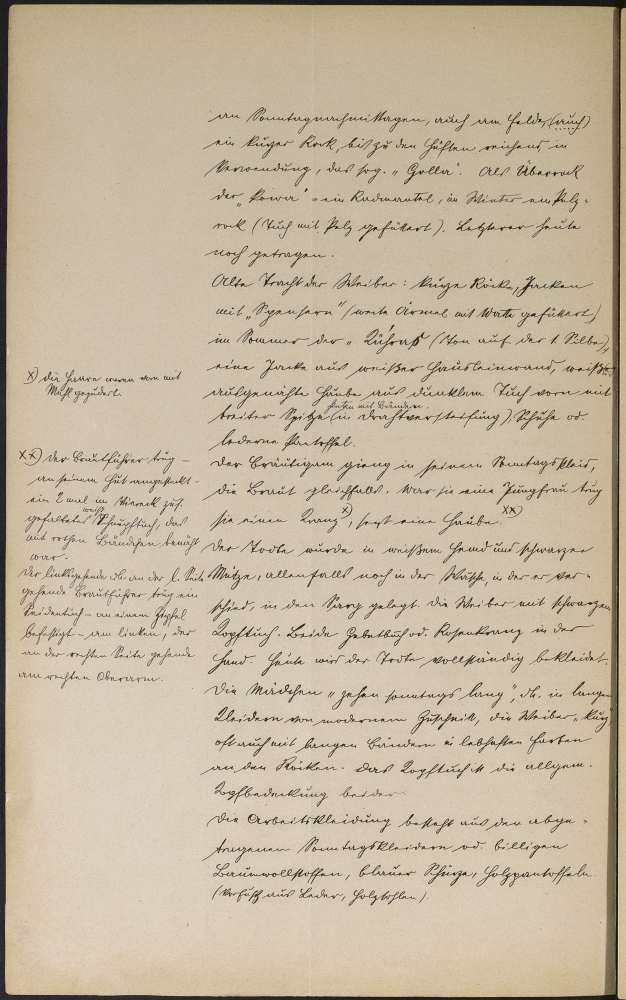 an Sonntagnachmittagen, auch am Felde, (auch)
ein kurzer Rock, bis zu den Hüften reichend, in
Verwendung, das sog. „Goller". Als Überrock
der „ " - ein Radmantel, im Winter ein Pelz-
rock (Tuch mit Pelz gefüttert). Letzterer heute
noch getragen.
Alte Tracht der Weiber: kurze Röcke, Jacken
mit „Spensern" (weite Ärmel mit Watte gefüttert)
im Sommer der „ " (Ton auf der 1. Silbe),
eine Jacke aus weißer Hausleinwand, weiß
ausgenähte Haube aus dunklem Tuch vorn mit
breiter Spitze (in Drahtversteifung) Schuhe od.
hinten mit Bändern.
lederne Pantoffel.
Der Bräutigam gieng in seinem Sonntagskleid,
die Braut gleichfalls. War sie eine Jungfrau trug
sie einen Kranz x), sonst eine Haube. xx)
Der Todte wurde in weißem Hemd und schwarzer
Mütze, allenfalls noch in der Wäsche, in der er ver-
schied, in den Sarg gelegt. Die Weiber mit schwarzem
Kopftuch. Beide Gebetbuch od. Rosenkranz in der
Hand. Heute wird der Todte vollständig bekleidet.
Die Mädchen „gehen sonntags lang", dh. in langen
Kleidern von modernem Zuschnitt, die Weiber „kurz"
oft auch mit langen Bändern in lebhaften Farben
an den Röcken. Das Kopftuch ist die allgem.
Kopfbedeckung beider.
Die Arbeitskleidung besteht aus den abge-
tragenen Sonntagskleidern od. billigen
Baumwollstoffen, blauer Schürze, Holzpantoffeln
(Vorfuß aus Leder, Holzsohlen).
x) Die Haare waren vorn mit
Mehl gepudert.
xx) Der Brautführer trug -
an seinem Hut angesteckt -
ein 2 mal im Viereck zus.
gefaltetes weißes Schnupftuch, das
mit rothen Bändchen benäht
war.
Der linksgehende dh. an der l. Seite
gehende Brautführer trug ein
Seidentuch - an einem Zipfel
befestigt - am linken, der
an der rechten Seite gehende
am rechten Oberarm.